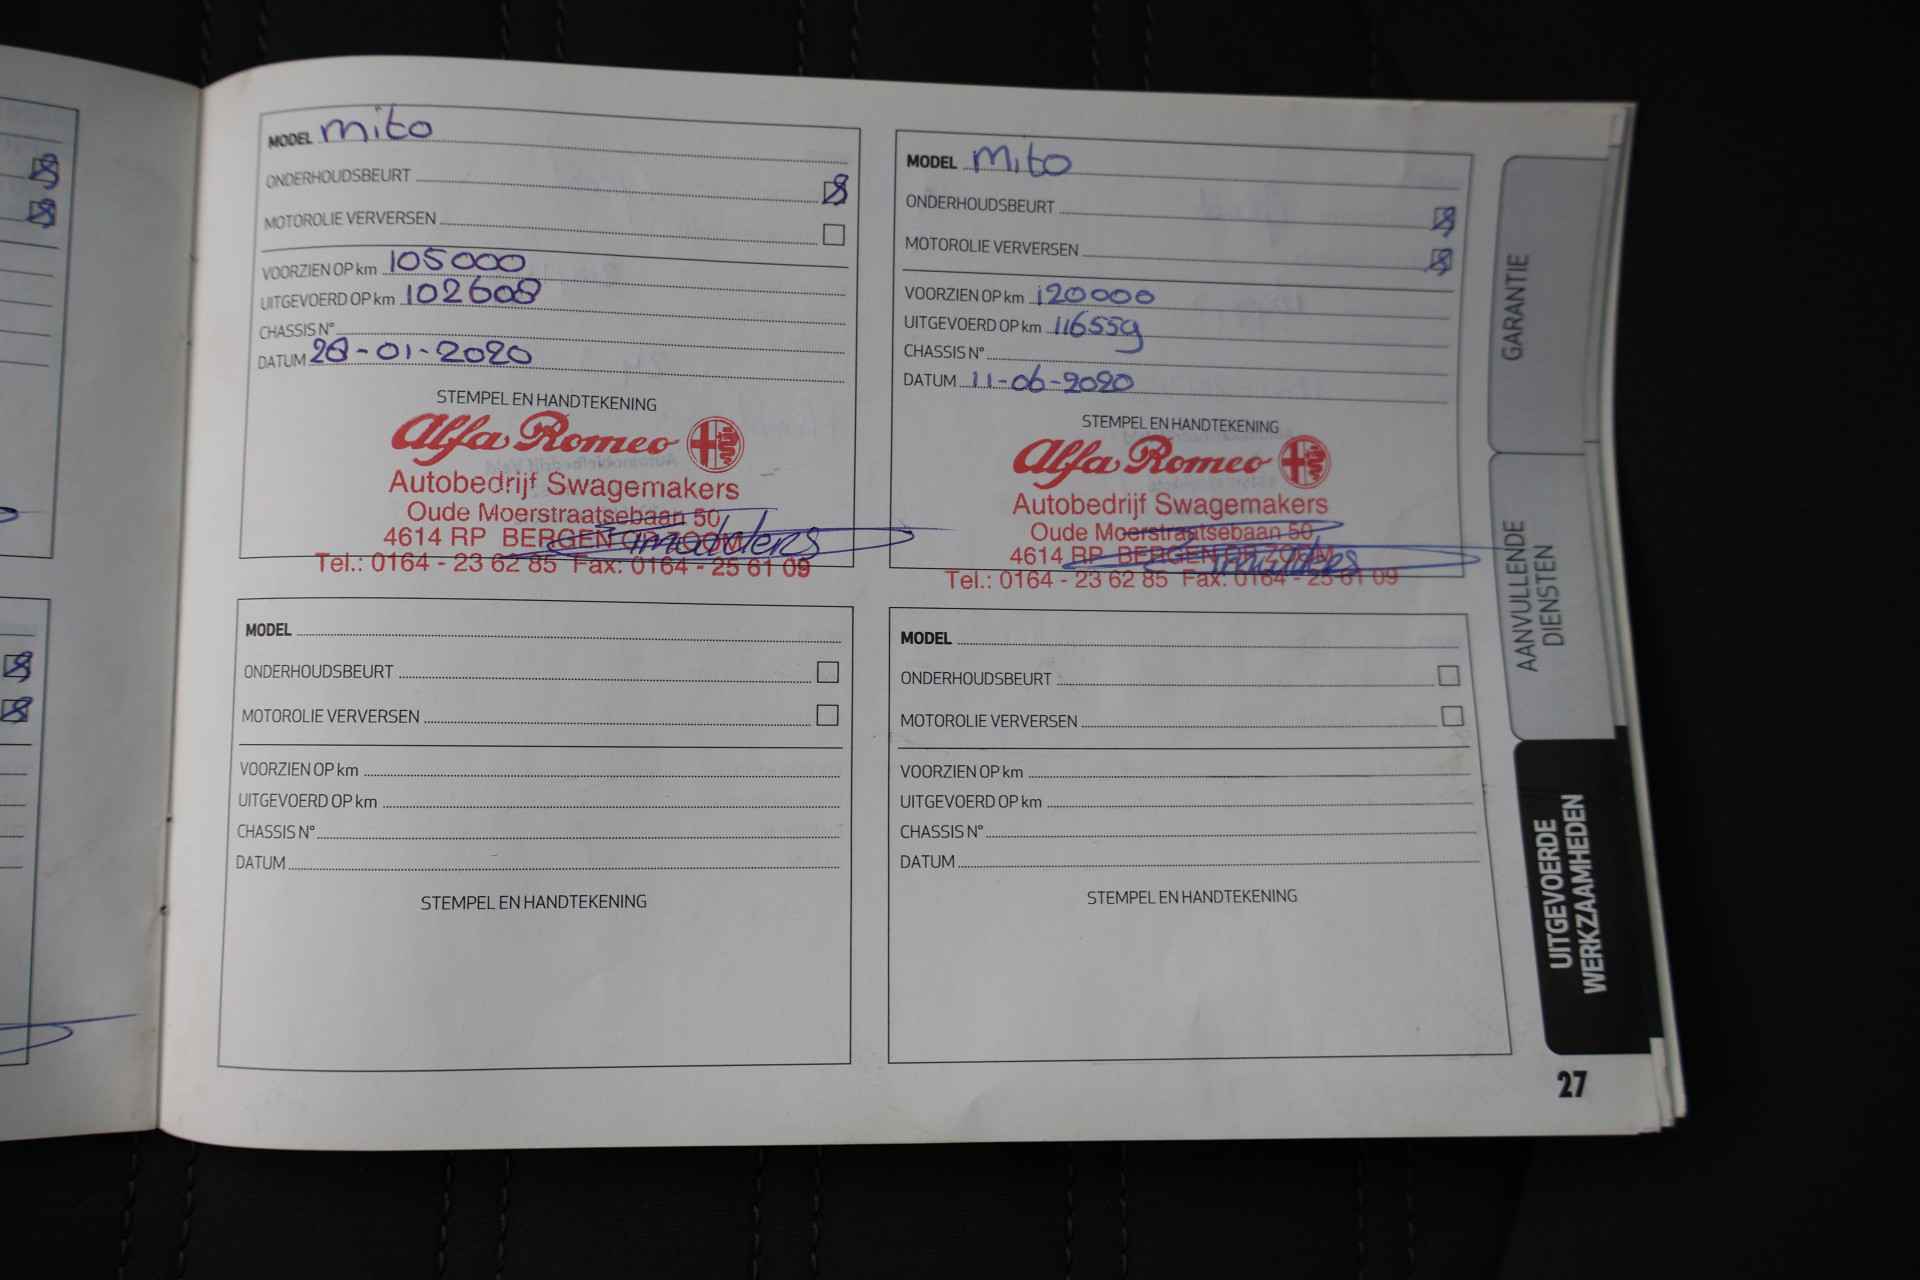 MODEL mito
ONDERHOUDSBEURT
MOTOROLIE VERVERSEN
VOORZIEN OP km 105000
UITGEVOERD OP km 102608
CHASSIS N°
DATUM 28-01-2020
STEMPEL EN HANDTEKENING
Alfa Romeo
Autobedrijf Swagemakers
Oude Moerstraatsebaan 50
4614 RP BERGEN OP ZOOM
Tel.: 0164 - 23 62 85 Fax: 0164 - 25 61 09
MODEL Mito
ONDERHOUDSBEURT
MOTOROLIE VERVERSEN
VOORZIEN OP km 120000
UITGEVOERD OP km 116559
CHASSIS N°
DATUM 11-06-2020
STEMPEL EN HANDTEKENING
Alfa Romeo
Autobedrijf Swagemakers
Oude Moerstraatsebaan 50
4614 RP BERGEN OP ZOOM
Tel.: 0164 - 23 62 85 Fax: 0164 - 25 61 09
MODEL
ONDERHOUDSBEURT
MOTOROLIE VERVERSEN
VOORZIEN OP km
UITGEVOERD OP km
CHASSIS N°
DATUM
STEMPEL EN HANDTEKENING
MODEL
ONDERHOUDSBEURT
MOTOROLIE VERVERSEN
VOORZIEN OP km
UITGEVOERD OP km
CHASSIS N°
DATUM
STEMPEL EN HANDTEKENING
GARANTIE
AANVULLENDE
DIENSTEN
UITGEVOERDE
WERKZAAMHEDEN
27